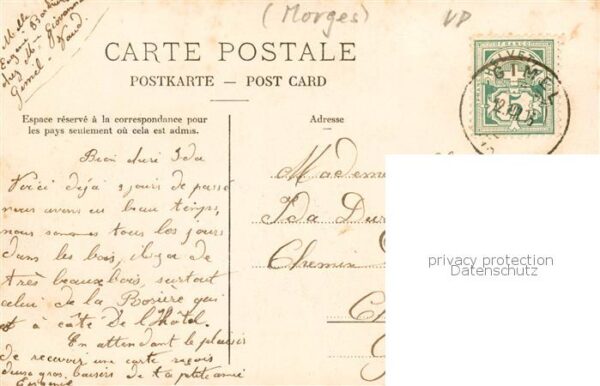 (Morges)
VD
Melle
chez Mr.
Gimel. Vaud
CARTE POSTALE
POSTKARTE — POST CARD
GIMEL
Espace réservé à la correspondance pour
les pays seulement où cela est admis.
Adresse
Bien chère Ida
Voici déjà 3 jours de passé
nous avons eu beau temps,
nous sommes tous les jours
dans les bois, il y a de
très beaux bois, surtout
celui de la Rosière qui
est à côté de l'Hôtel.
En attendant le plaisir
de recevoir une carte reçois
deux gros baisers de ta ptite amie
Eugénie
Mademo
Ida Du
Chemin
privacy protection
Datenschutz